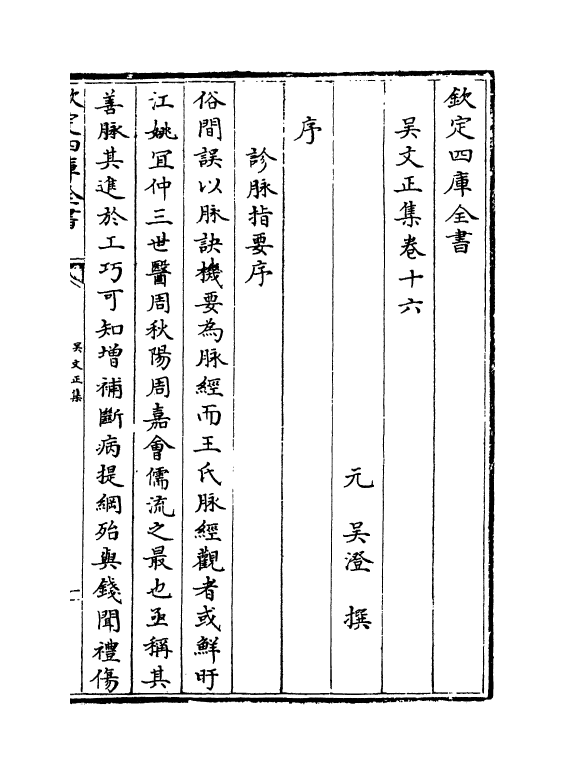 欽定四庫全書
吳文正集卷十六
元 吳澄 撰
序
診脉指要序
俗間誤以脉訣機要為脉經而王氏脉經觀者或鮮旴
江姚宜仲三世醫周秋陽周嘉會儒流之最也亟稱其
善脉其進於工巧可知増補斷病提綱殆與錢聞禮傷
欽定四庫全書
吳文正集
一